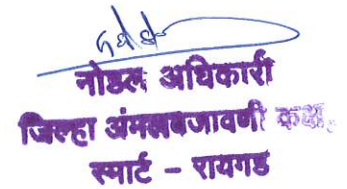 नोडल अधिकारी
जिल्हा अंमलबजावणी कक्ष,
स्मार्ट - रायगड